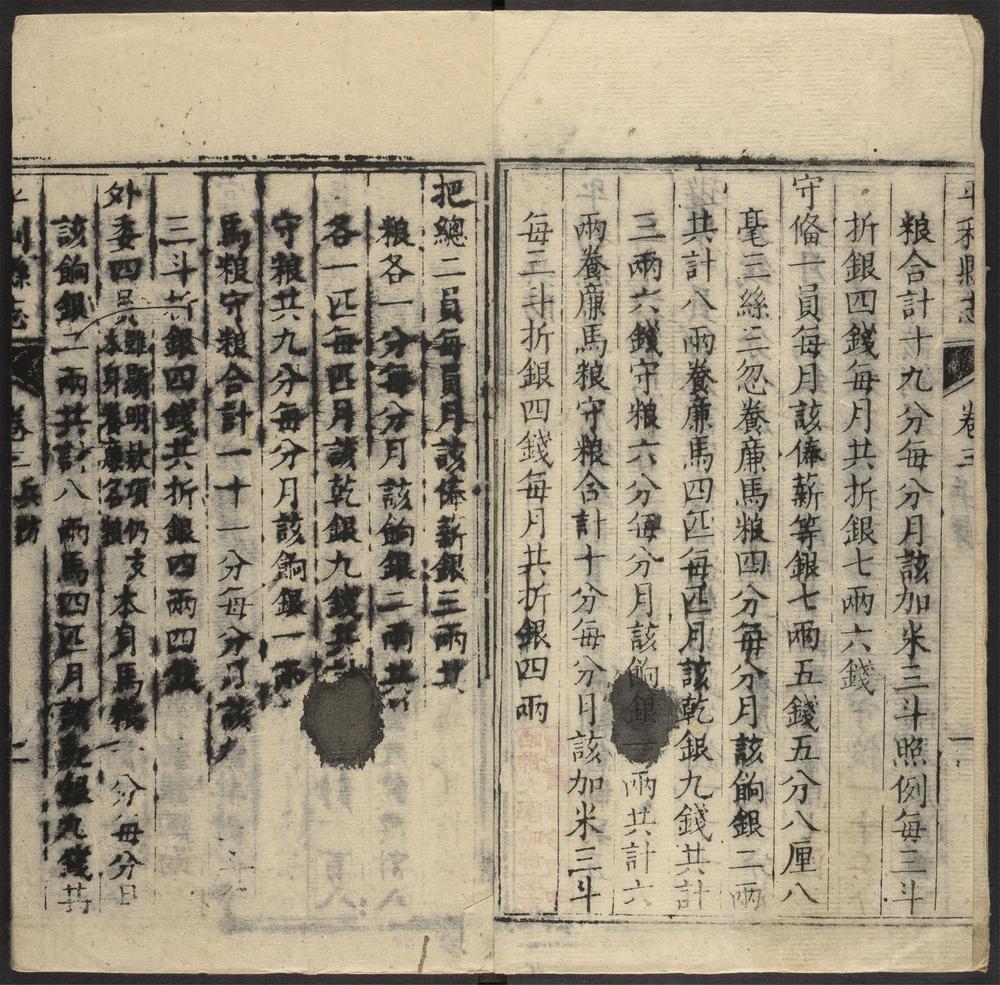 平和縣志 卷三 一
粮合計十九分每分月該加米三斗照例每三斗
折銀四錢每月共折銀七兩六錢
守俻一員每月該俸薪等銀七兩五錢五分八厘八
毫三絲三忽養廉馬粮四分每分月該餉銀二兩
共計八兩養廉馬四匹每匹月該乾銀九錢共計
三兩六錢守粮六分每分月該餉銀一兩共計六
兩養廉馬粮守粮合計十分每分月該加米三斗
每三斗折銀四錢每月共折銀四兩
把總二員每員月該俸薪銀三兩共
粮各一分每分月該餉銀二兩共
各一匹每匹月該乾銀九錢共計
守粮共九分每分月該餉銀一兩
馬粮守粮合計一十一分每分月該
三斗折銀四錢共折銀四兩四錢
外委四員雖顯明款項仍支本身養廉名粮本身馬粮一分每分月
該餉銀二兩共計八兩馬四匹月該乾銀九錢共
卷三 兵防 二